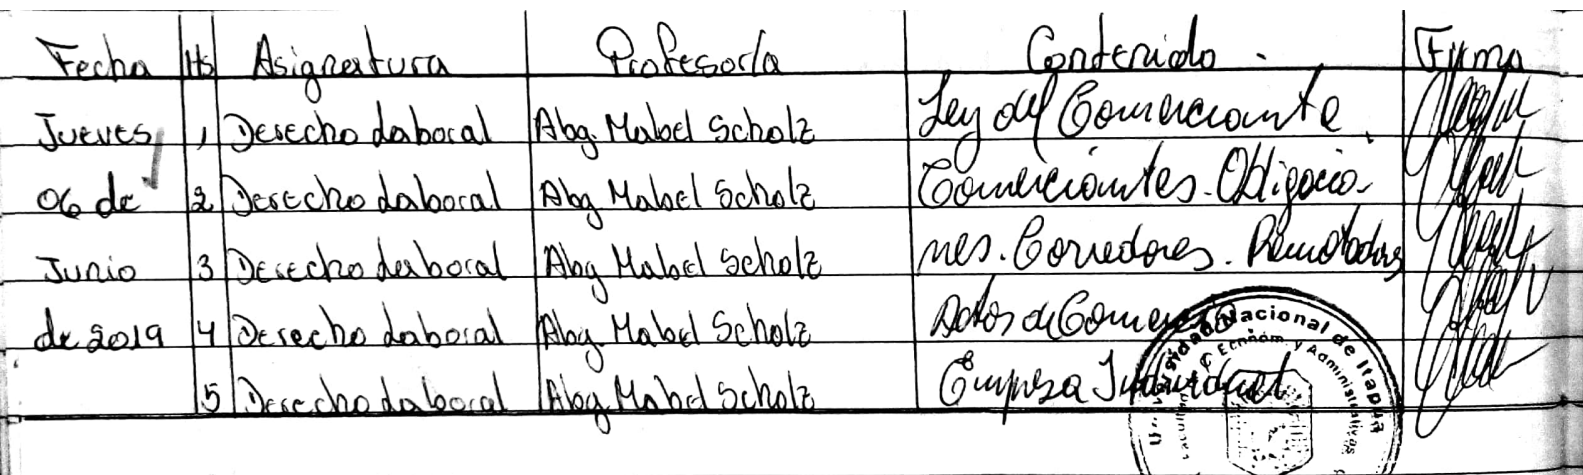 Fecha Hs Asignatura Profesor/a Contenido. Firma
Jueves 1 Derecho Laboral Abg. Mabel Scholz Ley del Comerciante.
06 de 2 Derecho Laboral Abg Mabel Scholz Comerciantes. Obligacio-
Junio 3 Derecho Laboral Abg Mabel Scholz nes. Corredores. Rematadores
de 2019 4 Derecho Laboral Abg. Mabel Scholz Actos de Comercio
5 Derecho Laboral Abg. Mabel Scholz Empresa Individual
Universidad Nacional de Itapúa
Económ. y Administrativas